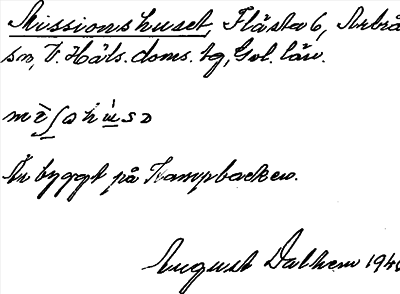 Missionshuset, Flästa 6, Arbrå
sn, V. Häls. doms. tg, Gvl. län.
Är byggt på Kampbacken.
August Dalhem 194